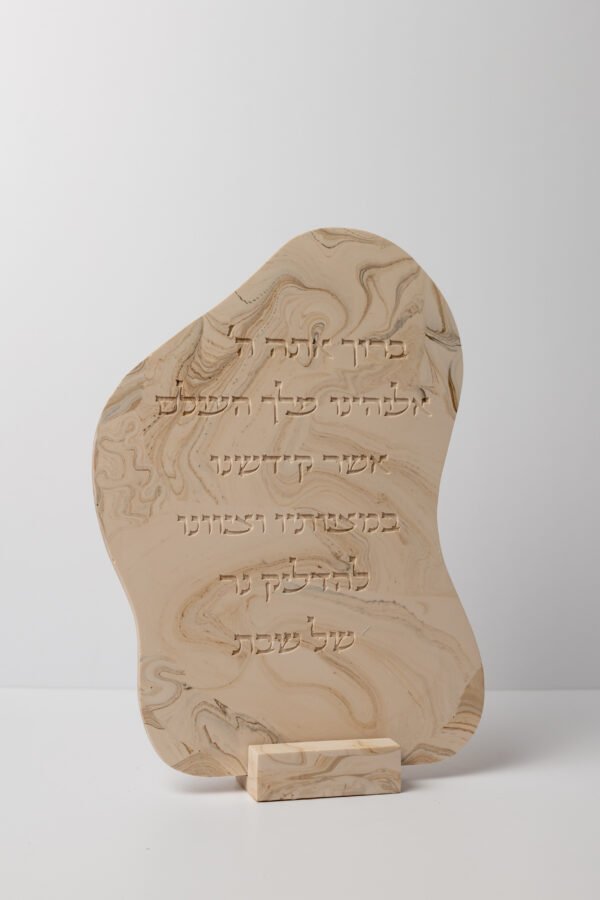 ברוך אתה ה'
אלוהינו מלך העולם
אשר קידשנו
במצותיו וצוונו
להדליק נר
של שבת